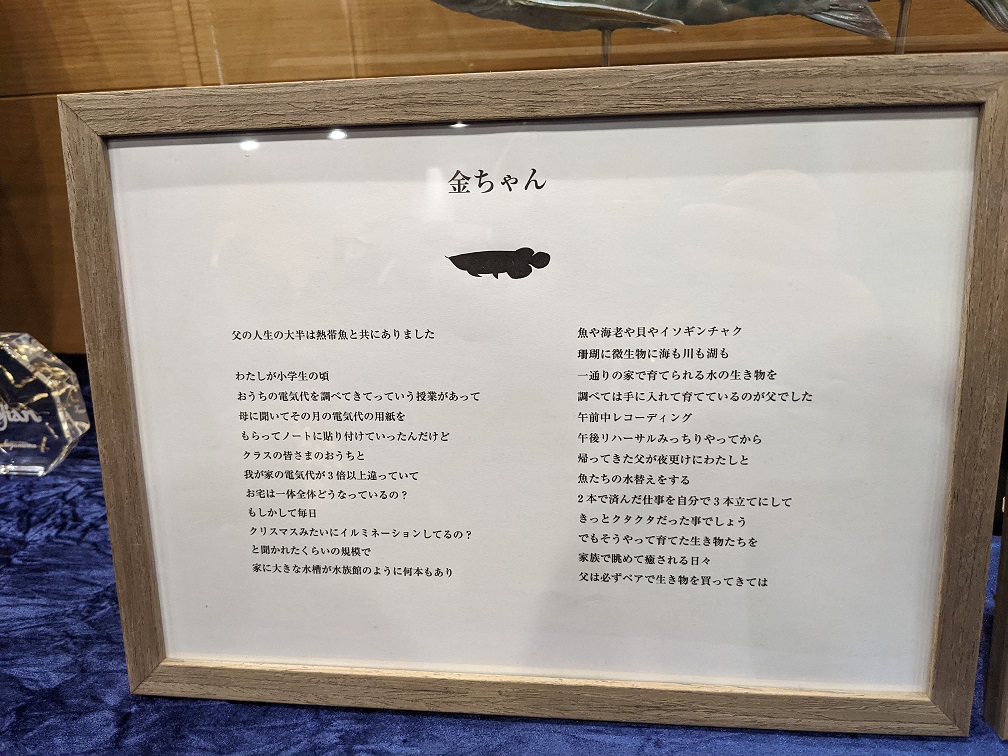 金ちゃん
父の人生の大半は熱帯魚と共にありました
わたしが小学生の頃
おうちの電気代を調べてきてっていう授業があって
母に聞いてその月の電気代の用紙を
もらってノートに貼り付けていったんだけど
クラスの皆さまのおうちと
我が家の電気代が3倍以上違っていて
お宅は一体全体どうなっているの？
もしかして毎日
クリスマスみたいにイルミネーションしてるの？
と聞かれたくらいの規模で
家に大きな水槽が水族館のように何本もあり
魚や海老や貝やイソギンチャク
珊瑚に微生物に海も川も湖も
一通りの家で育てられる水の生き物を
調べては手に入れて育てているのが父でした
午前中レコーディング
午後リハーサルみっちりやってから
帰ってきた父が夜更けにわたしと
魚たちの水替えをする
2本で済んだ仕事を自分で3本立てにして
きっとクタクタだった事でしょう
でもそうやって育てた生き物たちを
家族で眺めて癒される日々
父は必ずペアで生き物を買ってきては